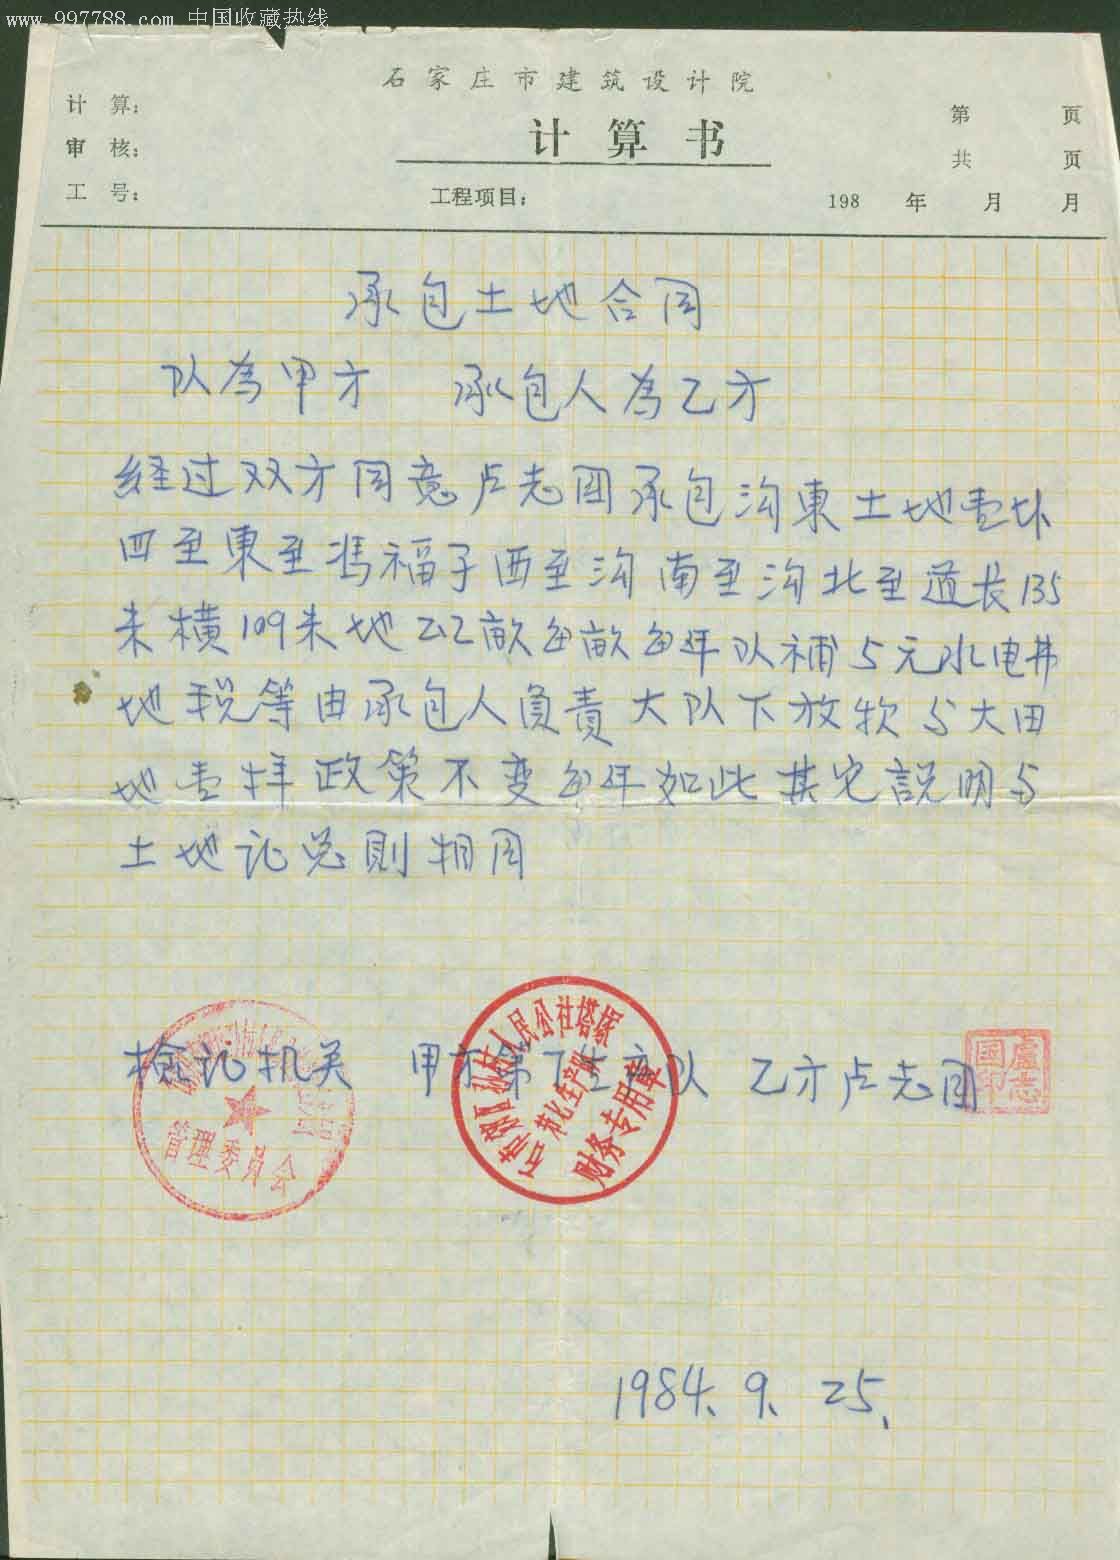 www.997788.com 中国收藏热线
石家庄市建筑设计院
计算：
第 页
计算书
审核：
共 页
工号：
工程项目：
198 年 月 月
承包土地合同
队為甲方 承包人為乙方
经过双方同意卢志国承包沟東土地壹块
四至東至馮福子西至沟南至沟北至道长135
米横109米地22亩每亩每年队补5元水电井
地税等由承包人負責大队下放牧与大田
地壹样政策不变每年如此其它説明与
土地记总則相同
检记机关 甲方第 生产队 乙方卢志国
管理委员会
人民公社塔塚
生产队
财务专用章
盧志國印
1984.9.25.